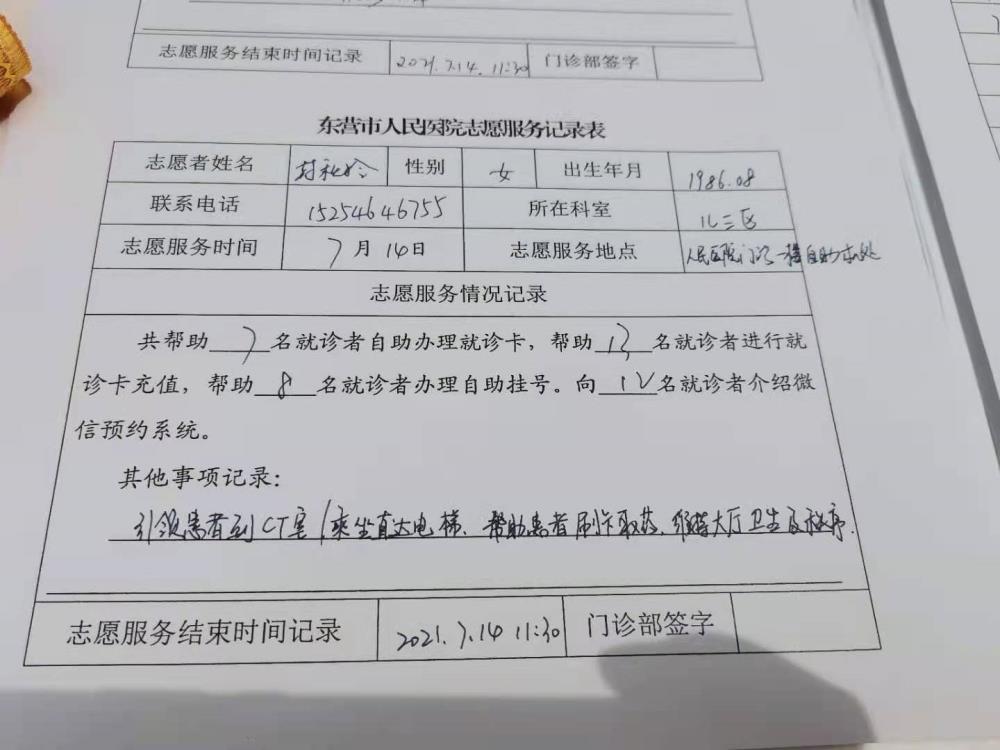 志愿服务结束时间记录 2021.7.14. 11:30 门诊部签字
东营市人民医院志愿服务记录表
志愿者姓名 性别 女 出生年月 1986.08
联系电话 15254646755 所在科室 儿三区
志愿服务时间 7月14日 志愿服务地点 人民医院门诊一楼自助办处
志愿服务情况记录
共帮助 7 名就诊者自助办理就诊卡，帮助 13 名就诊者进行就
诊卡充值，帮助 8 名就诊者办理自助挂号。向 12 名就诊者介绍微
信预约系统。
其他事项记录：
引领患者到CT室/乘坐直达电梯、帮助患者刷卡取药、维持大厅卫生及秩序.
志愿服务结束时间记录 2021.7.14 11:30 门诊部签字